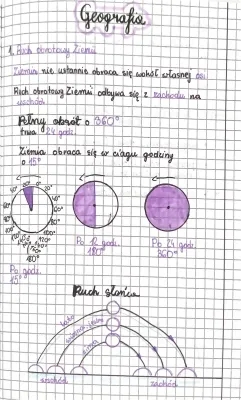 Geografia
1. Ruch obrotowy Ziemi
Ziemia nie ustannie obraca się wokół własnej osi
Ruch obrotowy Ziemi odbywa się z zachodu na
wschód
Pełny obrót o 360°
trwa 24 godz.
Ziemia obraca się w ciągu godziny
o 15°
Po 1 godz.
15°
Po 12 godz.
180°
Po 24 godz.
360°
Ruch słońca
lato
zima
wschód
zachód